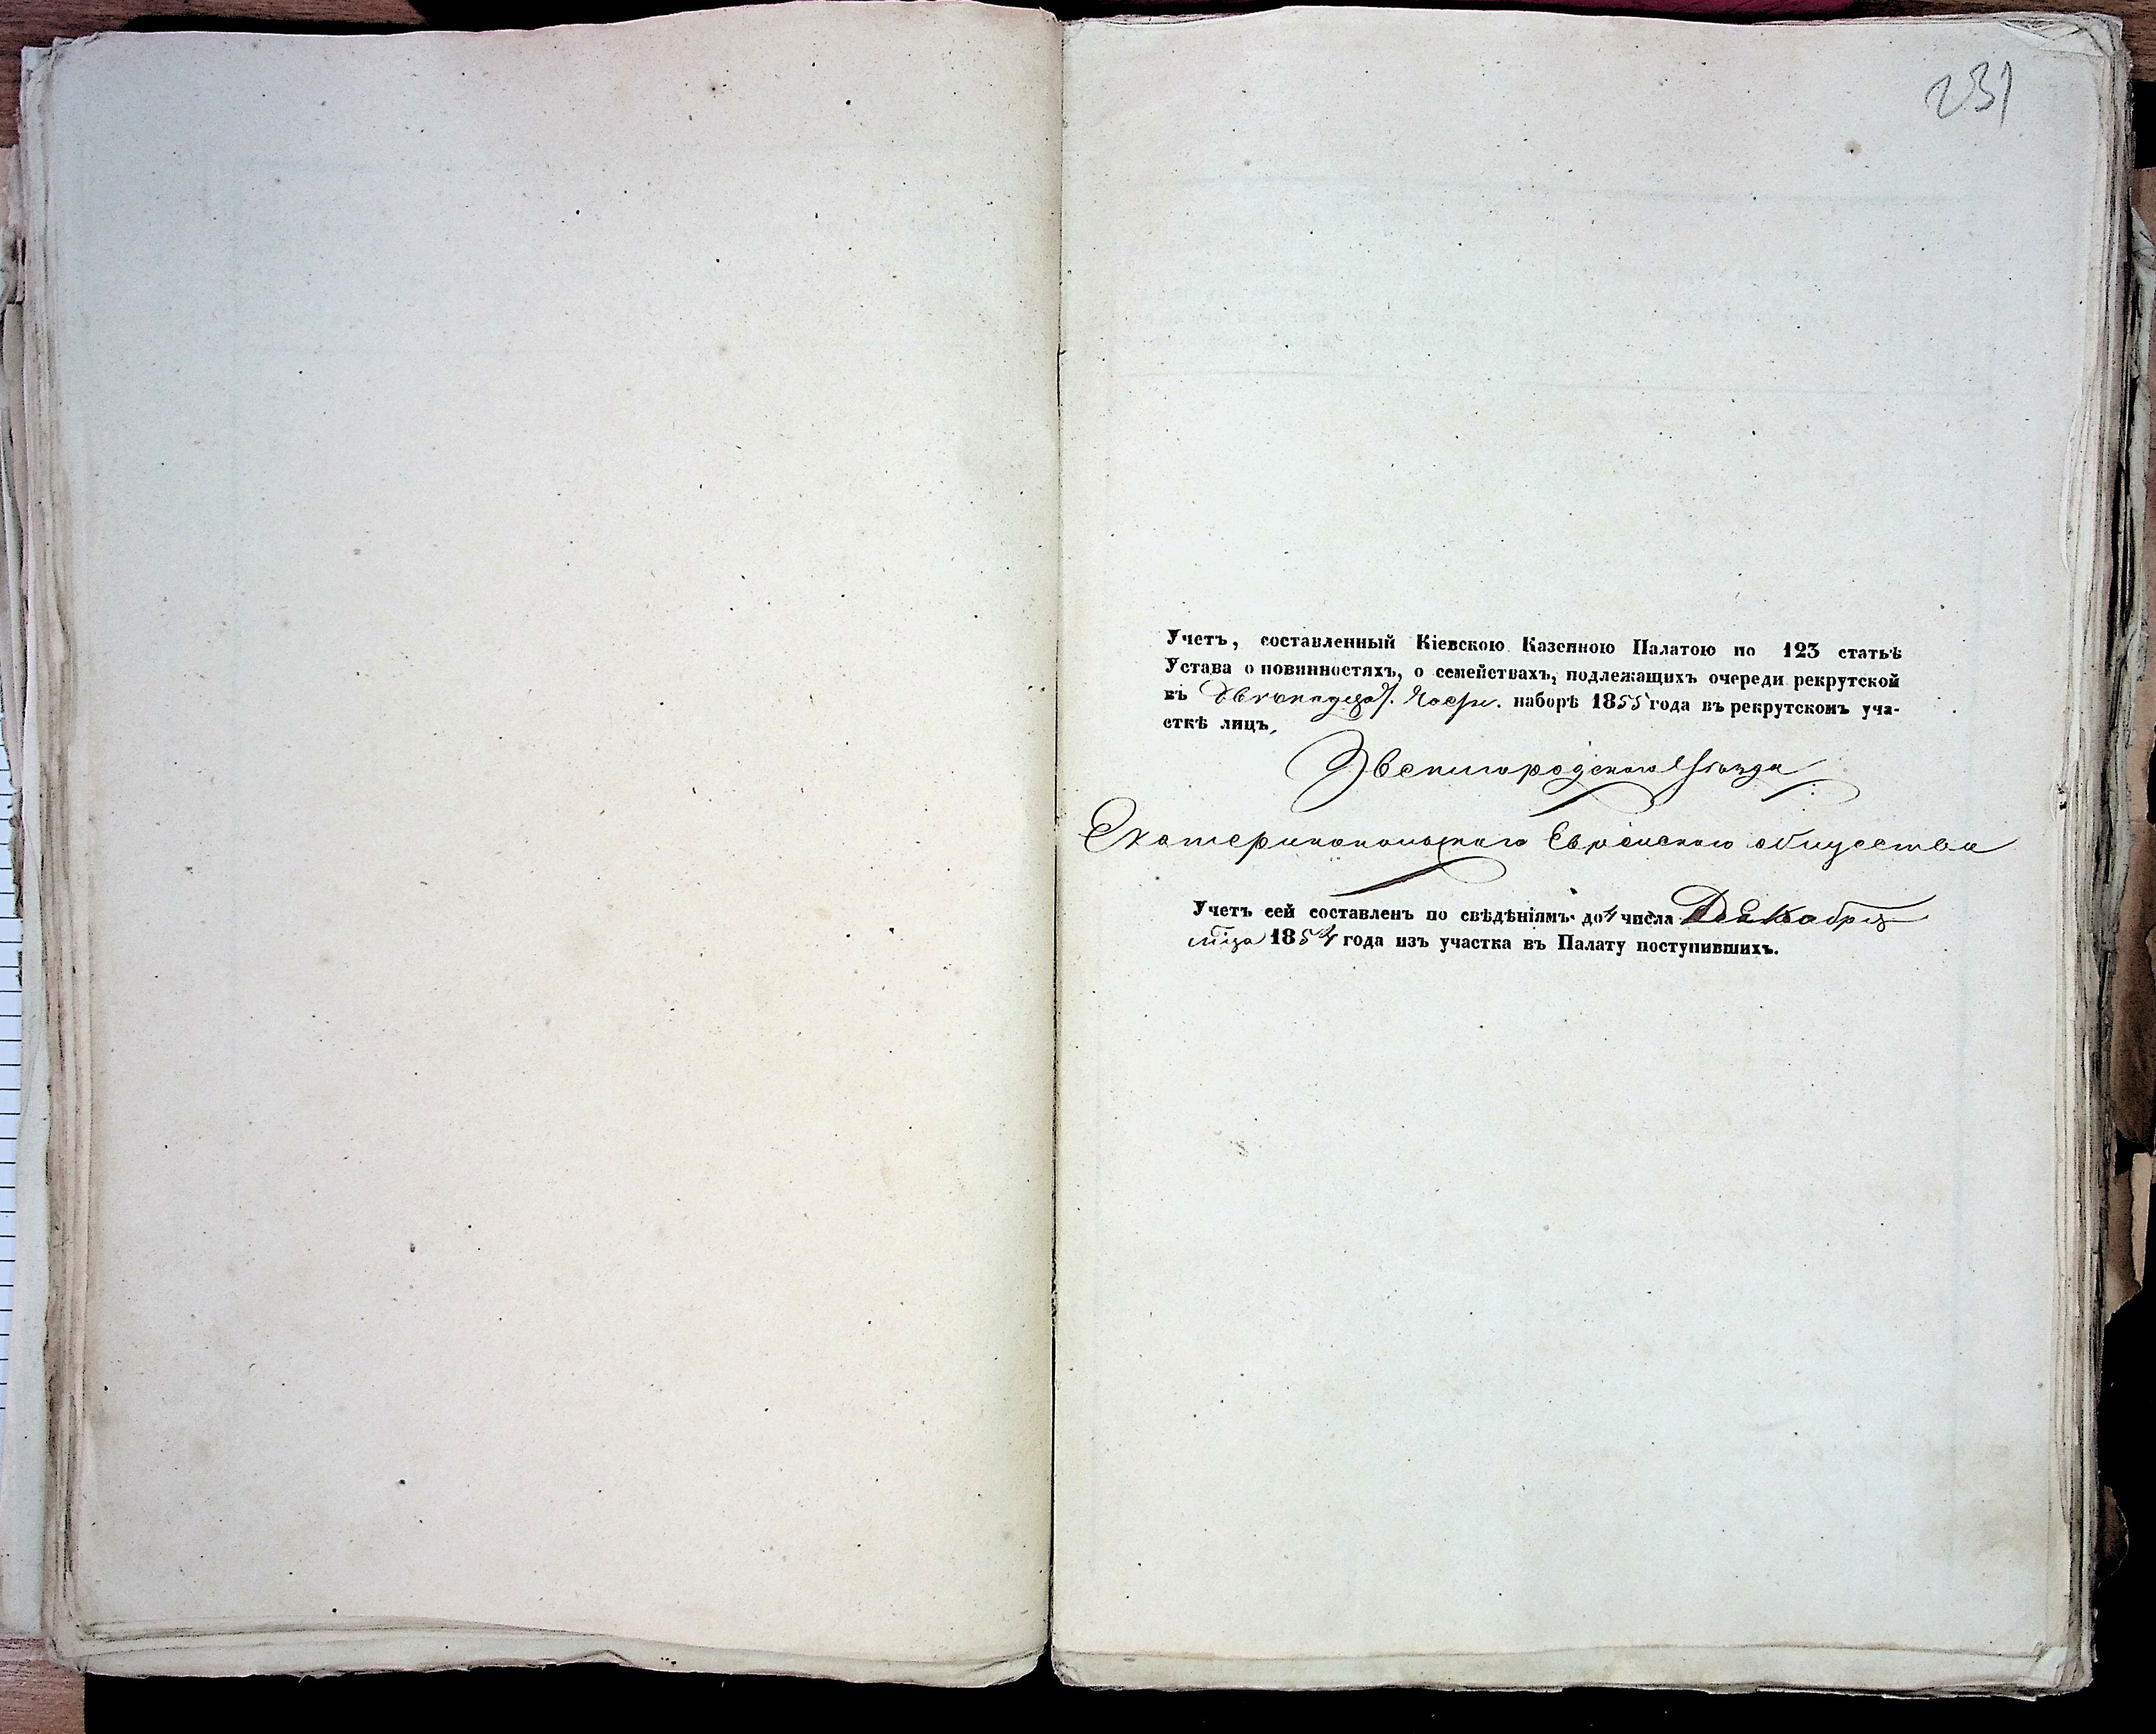 231
Учетъ, составленный Кіевскою Казенною Палатою по 123 статьѣ
Устава о повинностяхъ, о семействахъ, подлежащихъ очереди рекрутской
въ Двѣнадцат. Част. наборѣ 1855 года въ рекрутскомъ уча-
сткѣ лицъ,
Звенигородскаго Уѣзда
Екатеринопольскаго Еврейскаго общества
Учетъ сей составленъ по свѣдѣніямъ до 4 числа Декабря
мца 1854 года изъ участка въ Палату поступившихъ.